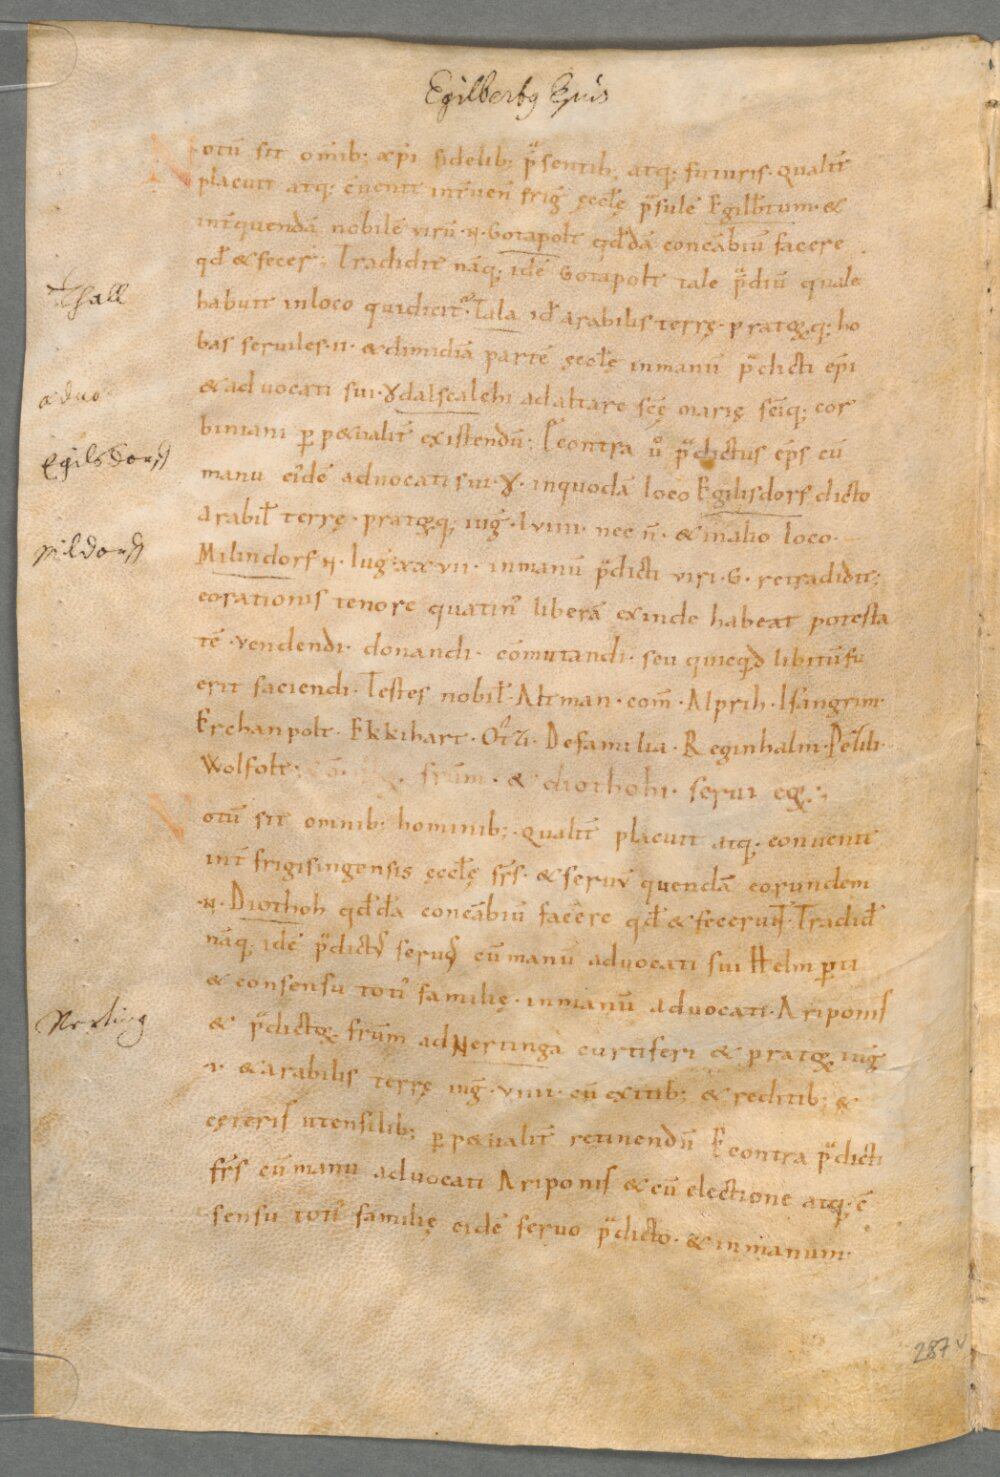 Egilbertꝰ Epus
Notū sit om̄ib; xp̄i fidelib; p̄sentib; atq; futuris. qualit̄
placuit atq; cuenit int̄ uen̄ friḡ ęccłę p̄sulē Egilb̄tum. &
int̄ quendā nobilē virū .N. Gotapolt qd̄dā concābiū facere
qd̄ & fecer̄; Tradidit nāq; idē Gotapolt tale p̄diū quale
habuit inloco quidicit̄ Tala id̄ arabilis terrę. pratoꝝq; ho
bas seruiles .II. & dimidiā partē ęccłę inmanū p̄dicti ep̄i
& aduocati sui. Ɣdalscalchi adaltare sc̄ę marię sc̄iq; cor
biniani p̱ p&ualit̄ existendū; Econtra ů p̄dictus ep̄s cū
manu eidē aduocati sui .Ɣ. inquodā loco Egilisdorf dicto
arabił terrę. pratoꝝq; iuḡ. LVIIII. nec n̄. & inalio loco.
Milindorf .N. Iuḡ. XXVII. inmanū p̄dicti viri .G. retradidit;
eo rationis tenore quatinꝰ liberā exinde habeat potesta
tē. vendendi. donandi. cōmutandi. seu quicqd̄ libitū fu
erit faciendi. Testes nobił. Altman. com̄. Alprih. Isangrim.
Erchanpolt. Ekkihart. Otʒi. Defamilia. Reginhalm. Pezili.
Wolfolt;
fr̄um. & diothohi. serui eoꝝ.
Notū sit omnib; hominib;. qualit̄ placuit atq; conuenit
int̄ frigisingensis ęccłę fr̄s. & seruū quendā eorundem
.N. Diothoh qd̄dā concābiū facere qd̄ & fecerunt̄. Tradid̄
nāq; idē p̄dictꝰ seruꝰ cū manū aduocati sui Helmp̱ti
& consensu totiꝰ familię. inmanū aduocati. Ariponis
& p̄dictoꝝ fr̄um ad Nertinga curtiferi & pratoꝝ iuḡ
.I. & arabilis terrę iuḡ. VIIII. cū exitib; & reditib; &
cęteris utensilib; p̱ p&ualit̄ retinendū Econtra p̄dicti
fr̄s cū manu aduocati Ariponis & cū electione atq; c̄
sensu totiꝰ familię eidē seruo p̄dicto. & inmanum.
Thall
aduo
Egilsdorff
Mildorff
Nerting
287v